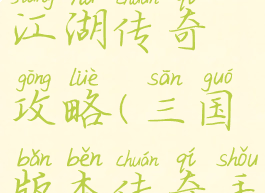 jiāng hú chuán qí
江湖传奇
gōng lüè sān guó
攻略(三国
bǎn běn chuán qí shǒu
版本传奇手